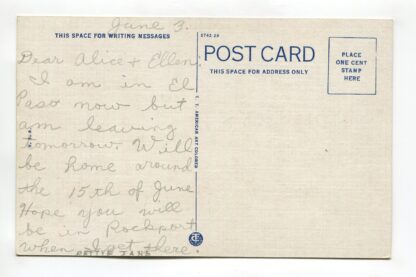 June 3.
THIS SPACE FOR WRITING MESSAGES
Dear Alice & Ellen,
I am in El
Paso now but
am leaving
tomorrow. Will
be home around
the 15th of June
Hope you will
be in Rockport
when I get there.
POST CARD
THIS SPACE FOR ADDRESS ONLY
PLACE
ONE CENT
STAMP
HERE
C. T. AMERICAN ART COLORED